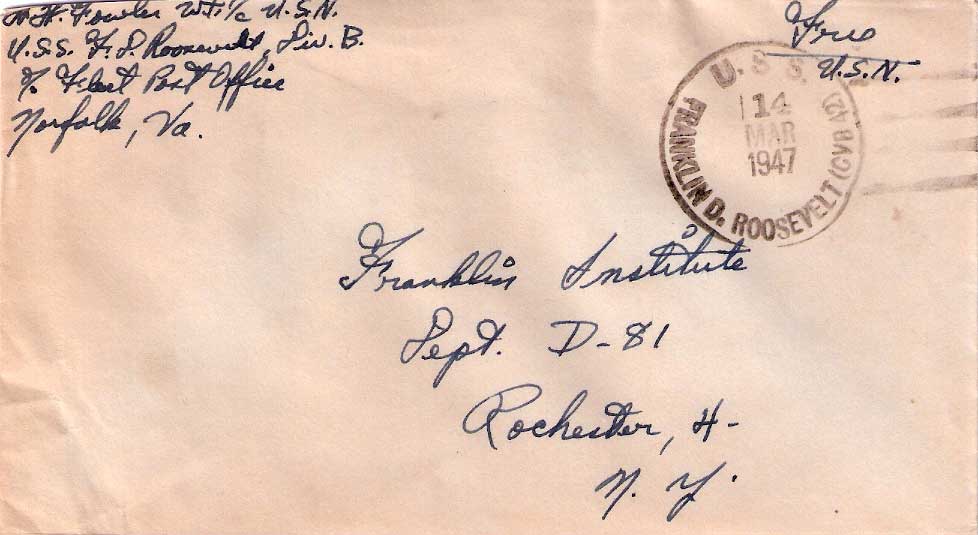 H. Fowler WT. 1/c U.S.N.
U.S.S. F. D. Roosevelt, Div. B.
℅ Fleet Post Office
Norfolk, Va.
Free
U.S.N.
U. S. S.
14
MAR
1947
FRANKLIN D. ROOSEVELT (CVB 42)
Franklin Institute
Dept. D-81
Rochester, 4-
N. Y.